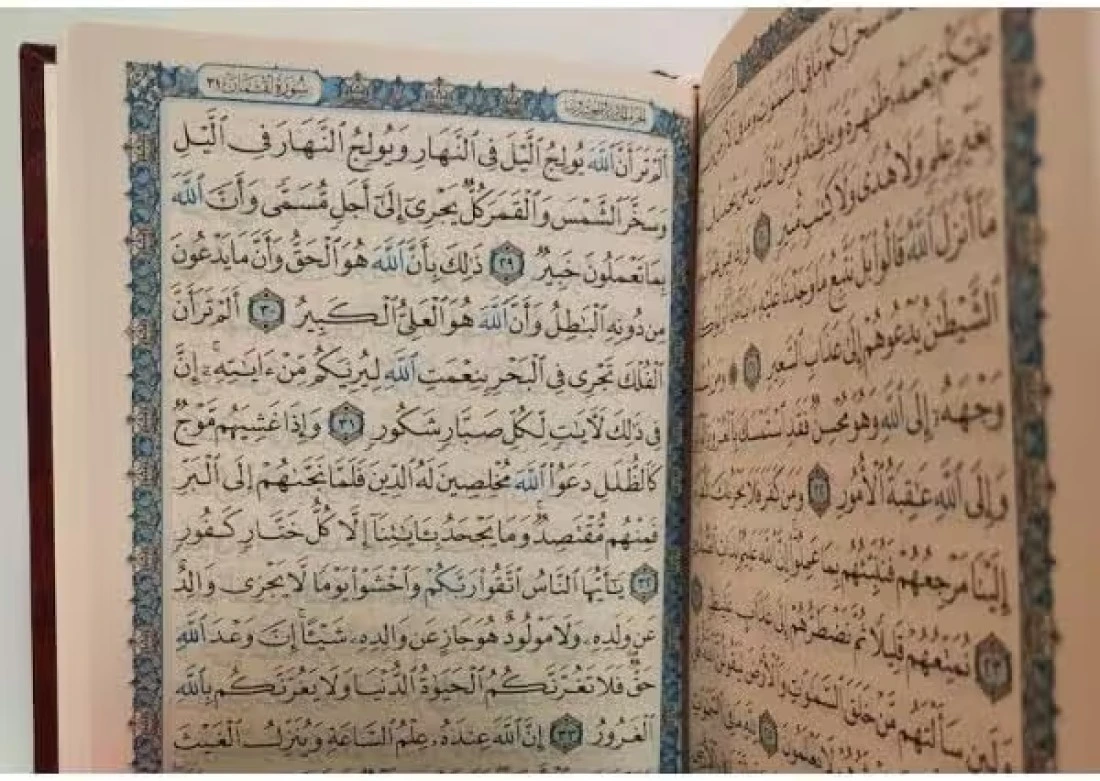 سُورَةُ لُقْمَان ٣١
أَلَمْ تَرَ أَنَّ ٱللَّهَ يُولِجُ ٱلَّيْلَ فِى ٱلنَّهَارِ وَيُولِجُ ٱلنَّهَارَ فِى ٱلَّيْلِ
وَسَخَّرَ ٱلشَّمْسَ وَٱلْقَمَرَ كُلٌّ يَجْرِىٓ إِلَىٰٓ أَجَلٍ مُّسَمًّى وَأَنَّ ٱللَّهَ
بِمَا تَعْمَلُونَ خَبِيرٌ ٢٩ ذَٰلِكَ بِأَنَّ ٱللَّهَ هُوَ ٱلْحَقُّ وَأَنَّ مَا يَدْعُونَ
مِن دُونِهِ ٱلْبَٰطِلُ وَأَنَّ ٱللَّهَ هُوَ ٱلْعَلِىُّ ٱلْكَبِيرُ ٣٠ أَلَمْ تَرَ أَنَّ
ٱلْفُلْكَ تَجْرِى فِى ٱلْبَحْرِ بِنِعْمَتِ ٱللَّهِ لِيُرِيَكُم مِّنْ ءَايَٰتِهِۦٓ ۚ إِنَّ
فِى ذَٰلِكَ لَءَايَٰتٍ لِّكُلِّ صَبَّارٍ شَكُورٍ ٣١ وَإِذَا غَشِيَهُم مَّوْجٌ
كَٱلظُّلَلِ دَعَوُا۟ ٱللَّهَ مُخْلِصِينَ لَهُ ٱلدِّينَ فَلَمَّا نَجَّىٰهُمْ إِلَى ٱلْبَرِّ
فَمِنْهُم مُّقْتَصِدٌ ۚ وَمَا يَجْحَدُ بِـَٔايَٰتِنَآ إِلَّا كُلُّ خَتَّارٍ كَفُورٍ
٣٢ يَٰٓأَيُّهَا ٱلنَّاسُ ٱتَّقُوا۟ رَبَّكُمْ وَٱخْشَوْا۟ يَوْمًا لَّا يَجْزِى وَالِدٌ
عَن وَلَدِهِۦ وَلَا مَوْلُودٌ هُوَ جَازٍ عَن وَالِدِهِۦ شَيْـًٔا ۚ إِنَّ وَعْدَ ٱللَّهِ
حَقٌّ ۖ فَلَا تَغُرَّنَّكُمُ ٱلْحَيَوٰةُ ٱلدُّنْيَا وَلَا يَغُرَّنَّكُم بِٱللَّهِ
ٱلْغَرُورُ ٣٣ إِنَّ ٱللَّهَ عِندَهُۥ عِلْمُ ٱلسَّاعَةِ وَيُنَزِّلُ ٱلْغَيْثَ
عَلَيْكُمْ نِعَمَهُۥ ظَٰهِرَةً وَبَاطِنَةً وَمِنَ ٱلنَّاسِ
بِغَيْرِ عِلْمٍ وَلَا هُدًى وَلَا كِتَٰبٍ مُّنِيرٍ
مَآ أَنزَلَ ٱللَّهُ قَالُوا۟ بَلْ نَتَّبِعُ مَا وَجَدْنَا عَلَيْهِ
ٱلشَّيْطَٰنُ يَدْعُوهُمْ إِلَىٰ عَذَابِ ٱلسَّعِيرِ
وَجْهَهُۥٓ إِلَى ٱللَّهِ وَهُوَ مُحْسِنٌ فَقَدِ ٱسْتَمْسَكَ
وَإِلَى ٱللَّهِ عَٰقِبَةُ ٱلْأُمُورِ ٢٢ وَمَن كَفَرَ فَلَا يَحْزُنكَ
إِلَيْنَا مَرْجِعُهُمْ فَنُنَبِّئُهُم بِمَا عَمِلُوٓا۟ إِنَّ ٱللَّهَ عَلِيمٌۢ
نُمَتِّعُهُمْ قَلِيلًا ثُمَّ نَضْطَرُّهُمْ إِلَىٰ عَذَابٍ
٢٣
وَلَئِن سَأَلْتَهُم مَّنْ خَلَقَ ٱلسَّمَٰوَٰتِ وَٱلْأَرْضَ